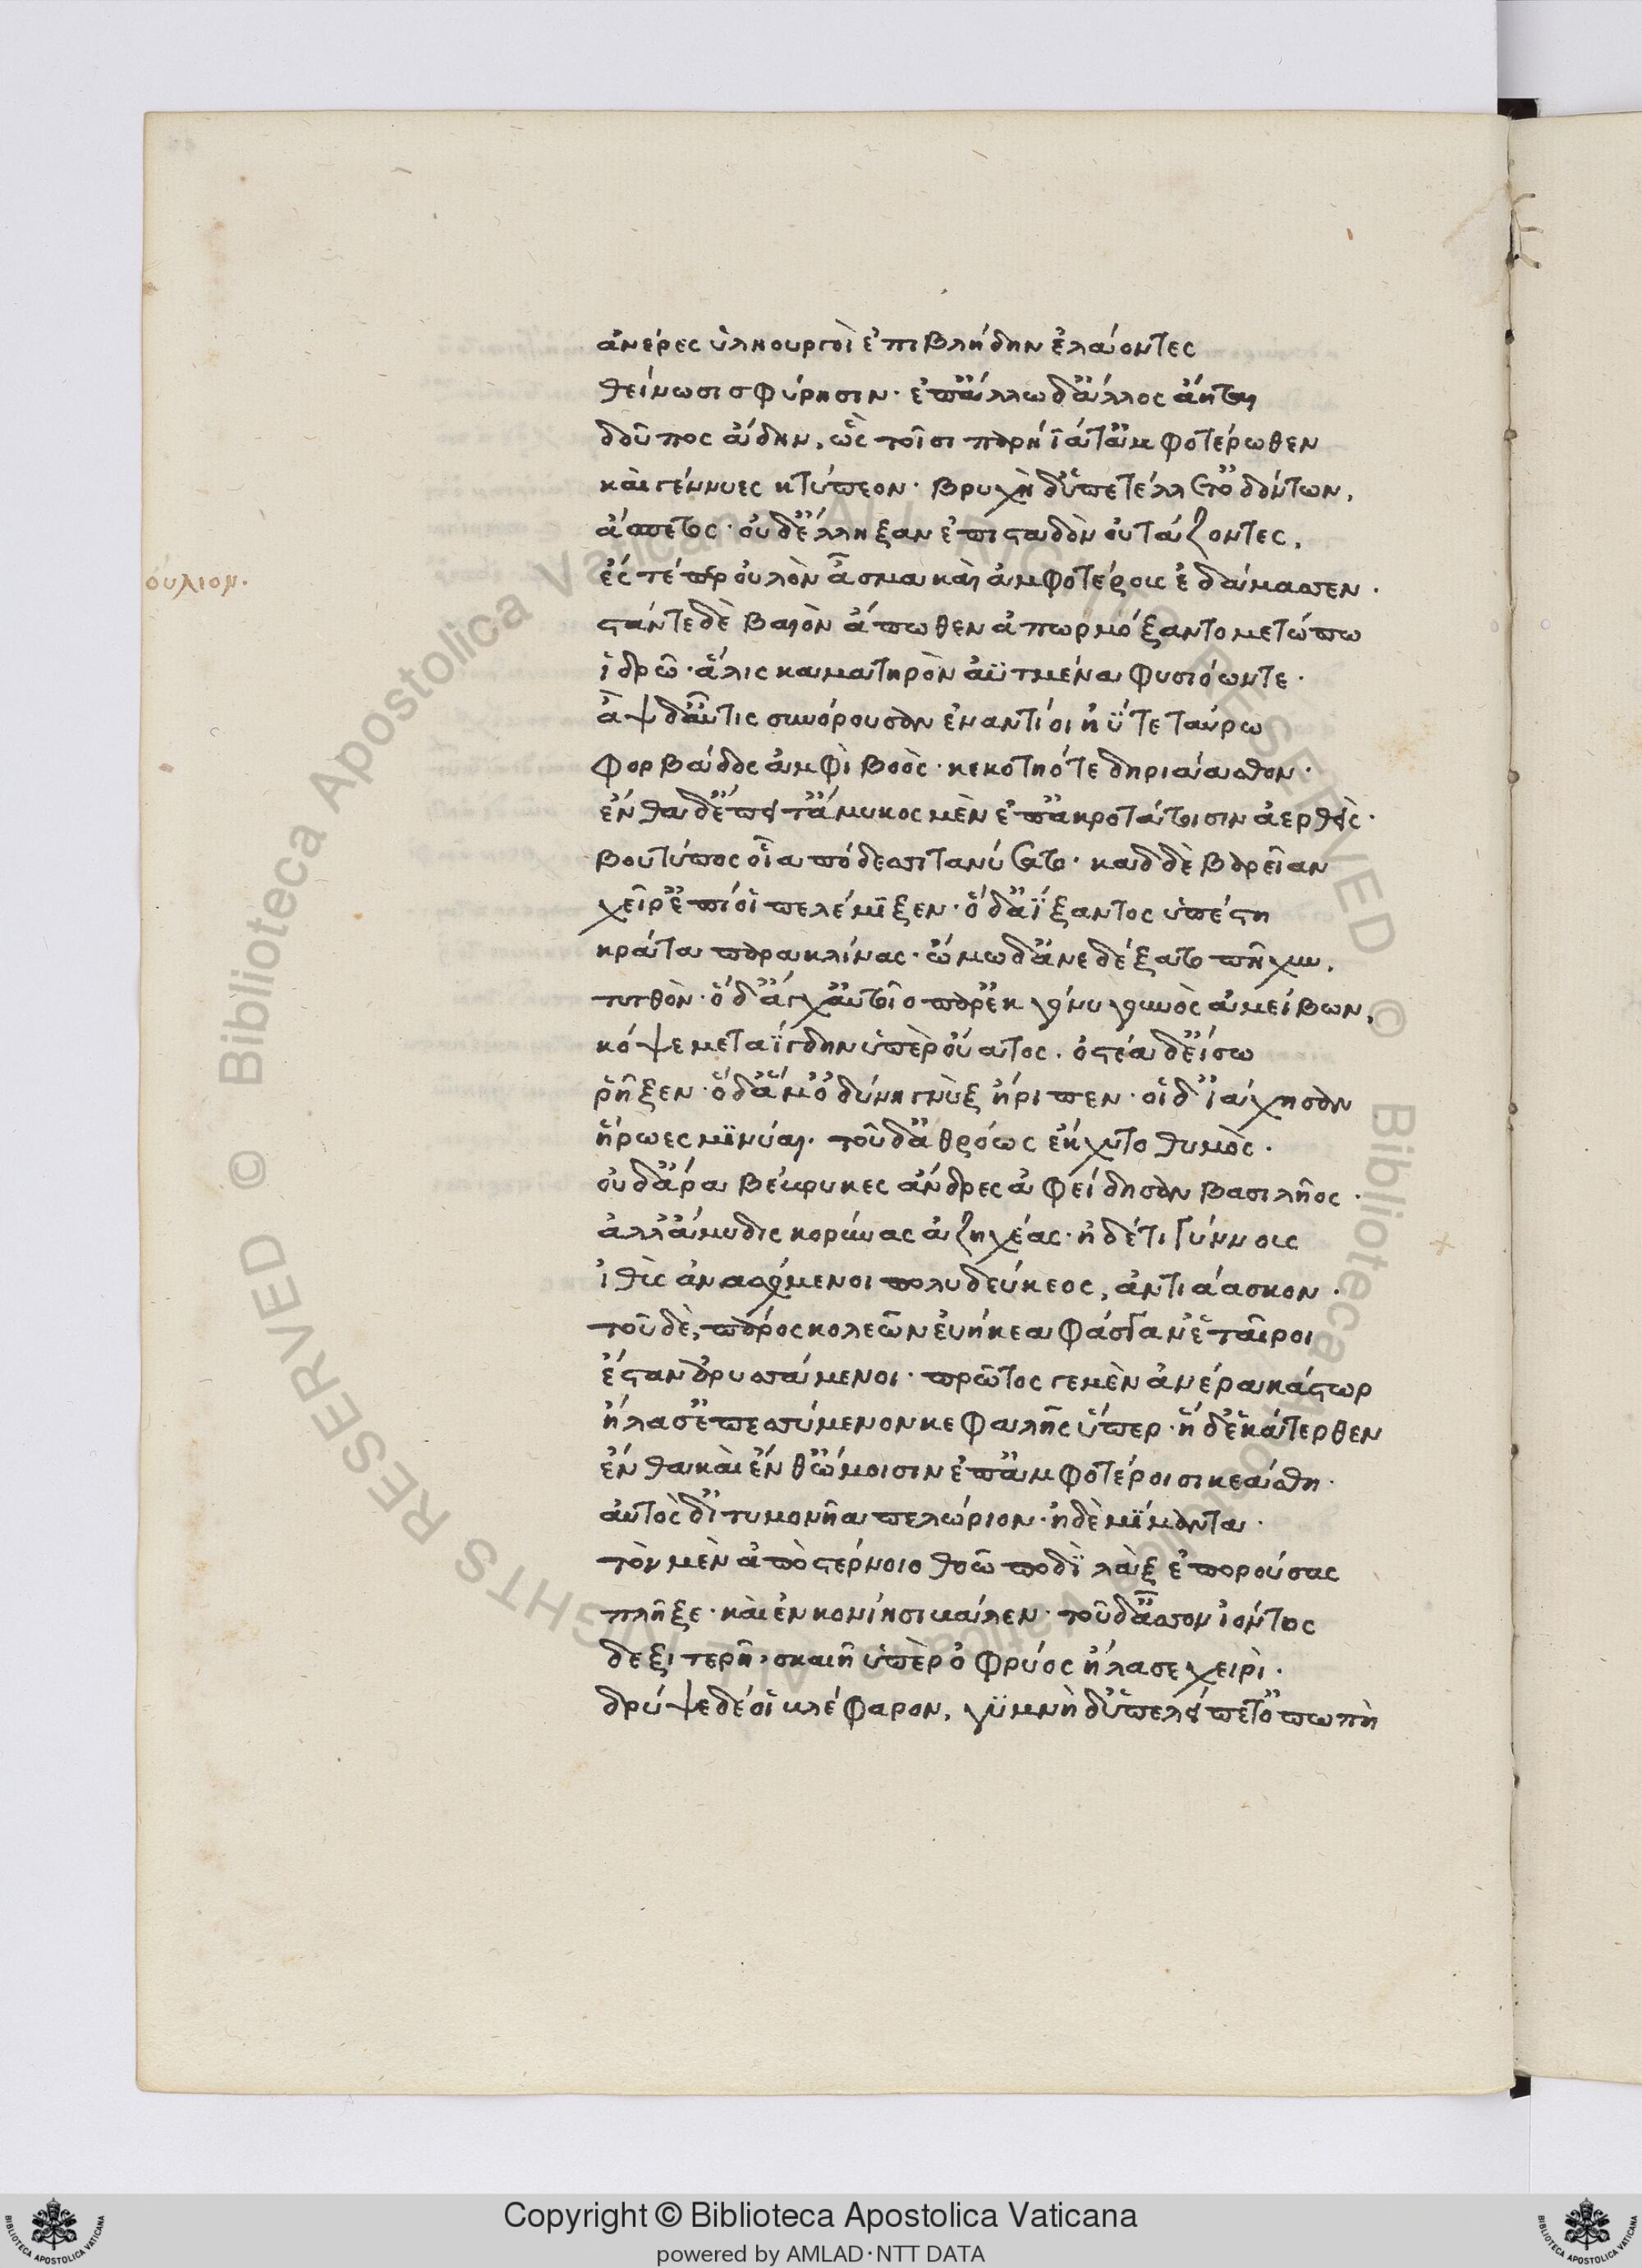 ἀνέρες ὑληουργοὶ ἐπιβλήδην ἐλάοντες
θείνωσι σφύρησιν· ἐπ' ἄλλω δ' ἄλλος ἄηται
δοῦπος ἄδην, ὣς τοῖσι παρήϊά τ' ἀμφοτέρωθεν
καὶ γέννυες κτύπεον· βρυχὴ δ' ὑπετέλλετ' ὀδόντων,
ἄσπετος· οὐδ' ἔλληξαν ἐπισταδὸν οὐτάζοντες,
ἔςτέ περ οὐλὸν ἆσμα καὶ ἀμφοτέρους ἐδάμασσεν·
οὔλιον·
στάντε δὲ βαιὸν ἄπωθεν ἀπωρμόξαντο μετώπω
ἱδρῶ· ἅλις καματηρὸν ἀϋτμένα φυσιόωντε·
ἂψ δ' αὖτις συνόρουσαν ἐναντίοι ἠΰτε ταύρω
φορβάδος ἀμφὶ βοὸς· κεκοτηότε δηριάασθον·
ἔνθα δ' ἔπειτ' ἄμυκος μὲν ἐπ' ἀκροτάτοισιν ἀερθεὶς·
βουτύπος οἷα πόδεσσι τανύσσατο· καδδὲ βαρεῖαν
χεῖρ' ἐπί οἱ πελέμιξεν· ὁ δ' ἀΐξαντος ὑπέστη
κρᾶτα παρακλίνας· ὤμω δ' ἀνεδέξατο πῆχυν,
τυτθὸν· ὁ δ' ἄγχ' αὐτοῖο παρ' ἐκ γόνυ γουνὸς ἀμείβων,
κόψε μεταΐγδην ὑπὲρ οὔατος· ὀστέα δ' εἴσω
ῥῆξεν· ὁ δ' ἀμ' ὀδύνη γνὺξ ἤριπεν· οἱ δ' ἰάχησαν
ἥρωες μινύαι· τοῦ δ' ἀθρόως ἔκχυτο θυμὸς·
οὐδ' ἄρα βέβρυκες ἄνδρες ἀφείδησαν βασιλῆος·
ἀλλ' ἄμυδις κορύνας ἀζηχέας· ἠδέ τι γύννους
ἰθὺς ἀνασχόμενοι πολυδεύκεος, ἀντιάασκον·
τοῦ δὲ, πάρος κολεῶν εὐήκεα φάσγαν' ἑταῖροι
ἔσταν ἐρυσσάμενοι· πρῶτος γεμὲν ἀνέρα κάστωρ
ἤλασ' ἐπεσσύμενον κεφαλῆς ὕπερ· ἡ δ' ἑκάτερθεν
ἔνθα καὶ ἔνθ' ὤμοισιν ἐπ' ἀμφοτέροισι κεάσθη·
αὐτὸς δ' ἰτυμονῆα πελώριον· ἠδὲ μίμαντα·
τὸν μὲν ἀπὸ στέρνοιο θοῶ ποδὶ λὰξ ἐπορούσας
πλῆξε· καὶ ἐν κονίησι κάλεν· τοῦ δ' ἆσσον ἰόντος
δεξιτερῆ, σκαιῆ ὑπὲρ ὀφρύος ἤλασε χειρὶ·
δρύψε δέ οἱ κλέφαρον, γυμνὴ δ' ὑπελείπετ' ὀπωπὴ
Copyright © Biblioteca Apostolica Vaticana
powered by AMLAD·NTT DATA